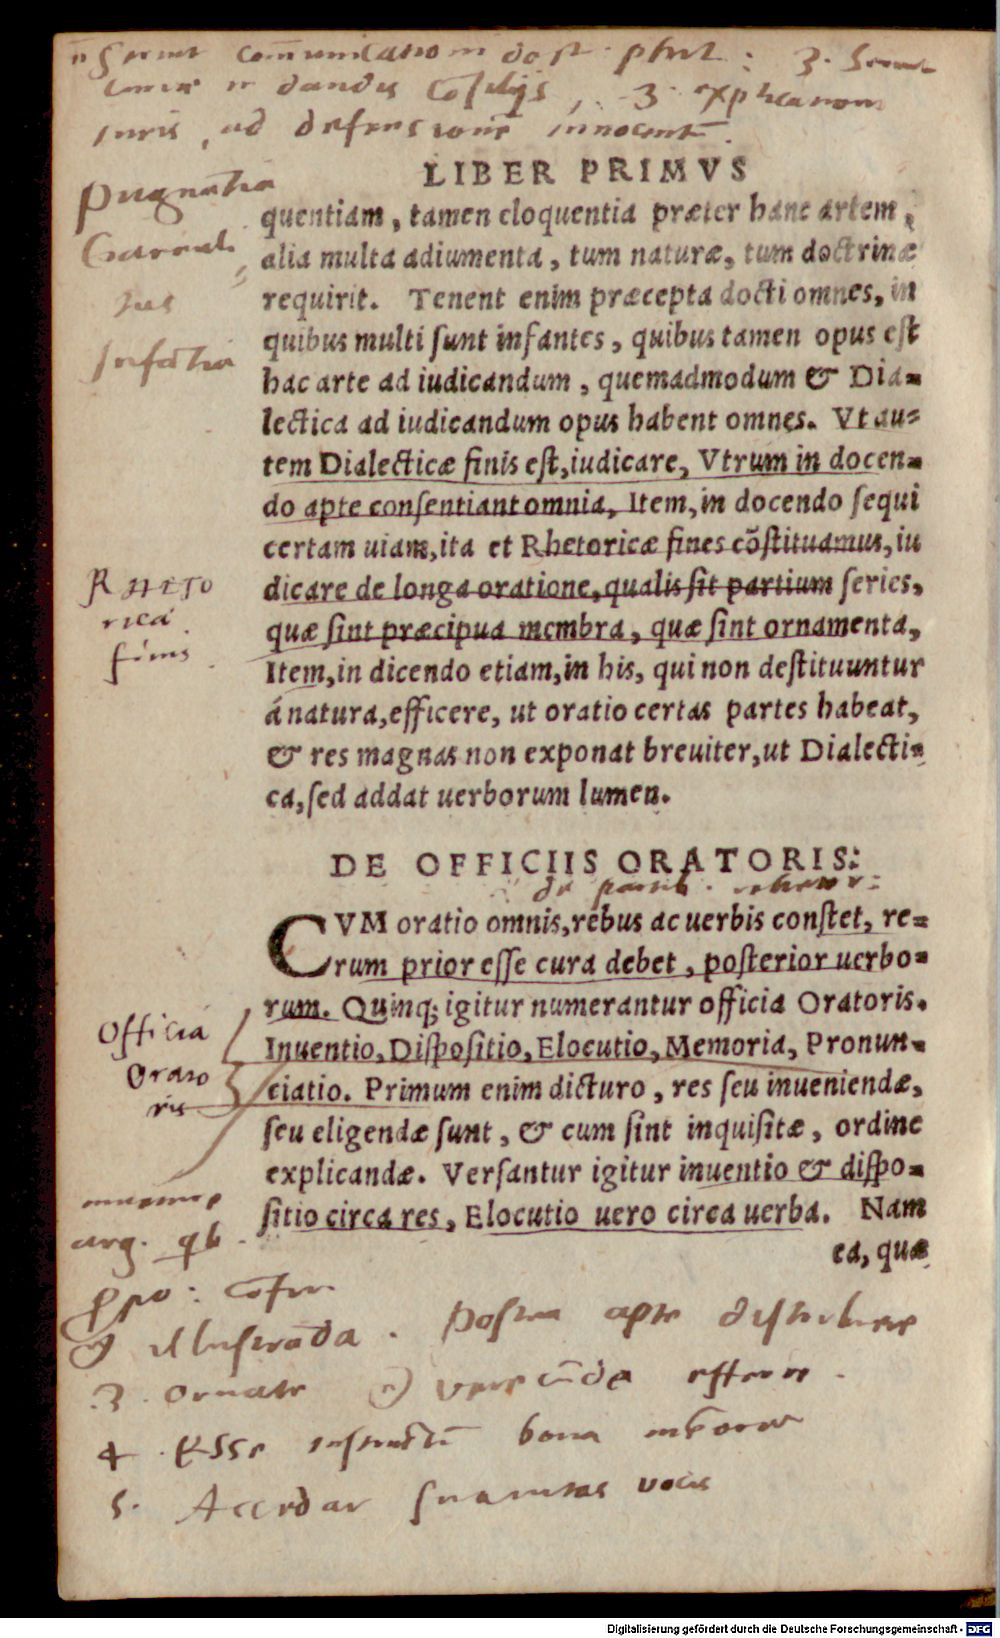 dandis
iuris, ad defensione innocent
LIBER PRIMVS
quentiam, tamen eloquentia præter hanc artem,
alia multa adiumenta, tum naturæ, tum doctrinæ
requirit. Tenent enim præcepta docti omnes, in
quibus multi ſunt infantes, quibus tamen opus eſt
Infātia
hac arte ad iudicandum, quemadmodum & Dia-
lectica ad iudicandum opus habent omnes. Vt au-
tem Dialecticæ finis eſt, iudicare, Vtrum in docen-
do apte conſentiant omnia, Item, in docendo ſequi
certam uiam, ita et Rhetoricæ fines cõſtituamus, iu
Rheto
rica
finis
dicare de longa oratione, qualis ſit partium ſeries,
quæ ſint præcipua membra, quæ ſint ornamenta,
Item, in dicendo etiam, in his, qui non deſtituuntur
á natura, efficere, ut oratio certas partes habeat,
& res magnas non exponat breuiter, ut Dialecti-
ca, ſed addat uerborum lumen.
DE OFFICIIS ORATORIS:
CVM oratio omnis, rebus ac uerbis conſtet, re-
rum prior eſſe cura debet, poſterior uerbo-
rum. Quinq; igitur numerantur officia Oratoris.
Officia
Orato
ris
Inuentio, Diſpoſitio, Elocutio, Memoria, Pronun-
ciatio. Primum enim dicturo, res ſeu inueniendæ,
ſeu eligendæ ſunt, & cum ſint inquiſitæ, ordine
explicandæ. Verſantur igitur inuentio & diſpo-
ſitio circa res, Elocutio uero circa uerba. Nam
ea, quæ
arg. qb
illustrāda. Postea apte distribuere
3. Ornate efferre.
4. Esse instructū bona memoria
5. Accedat suauitas vocis
Digitalisierung gefördert durch die Deutsche Forschungsgemeinschaft - DFG